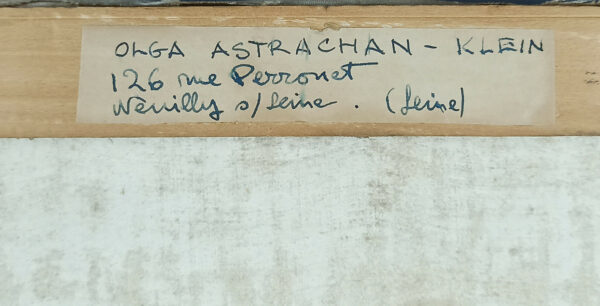 OLGA ASTRACHAN - KLEIN
126 rue Perronet
Neuilly s/Seine. (Seine)